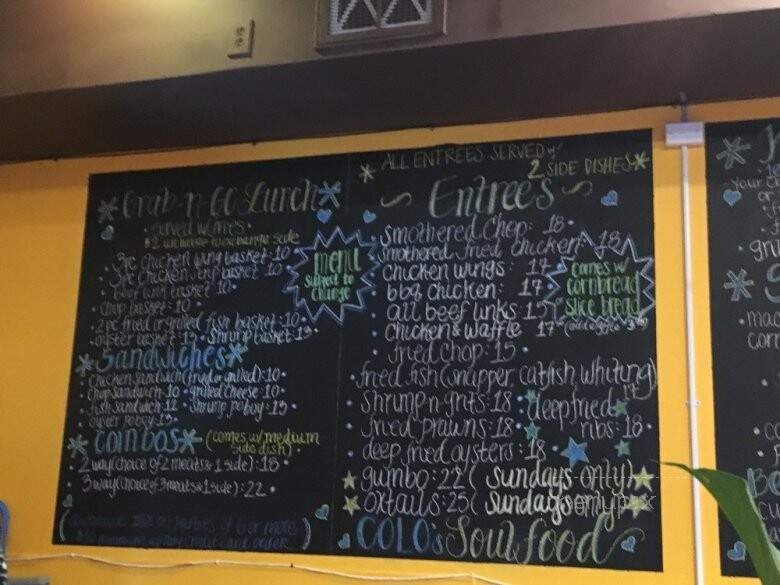 Grab-n-Go Lunch
Served w/fries
$2 increase to exchange side
3pc chicken wing basket: 10
3pc chicken strip basket: 10
beef link basket: 10
chop basket: 10
2pc fried or grilled fish basket: 10
oyster basket: 13 • Shrimp basket: 13
Sandwiches
Chicken Sandwich (fried or grilled): 10
Chop Sandwich: 10 • grilled cheese: 10
fish sandwich: 12 • Shrimp poboy: 13
oyster poboy: 13
Combos (comes w/medium
side dish)
2 way (choice of 2 meats & 1 side): 18
3 way (choice of 3 meats & 1 side): 22
on parties of 6 or more
menu
subject to
change
ALL ENTREES SERVED w/
2 SIDE DISHES
Entrees
Smothered Chop: 18
Smothered fried chicken: 18
chicken wings: 17
bbq chicken: 17
all beef links: 15
Chicken & Waffle: 17
fried chop: 15
fried fish (snapper, catfish, whiting)
17
Shrimp n grits: 18 • deep fried
ribs: 18
fried prawns: 18
deep fried oysters: 18
gumbo: 22 (Sundays only)
oxtails: 25 (Sundays only)
COLO's Soul food
comes w/
cornbread
slice bread
your
gri
mac
corn